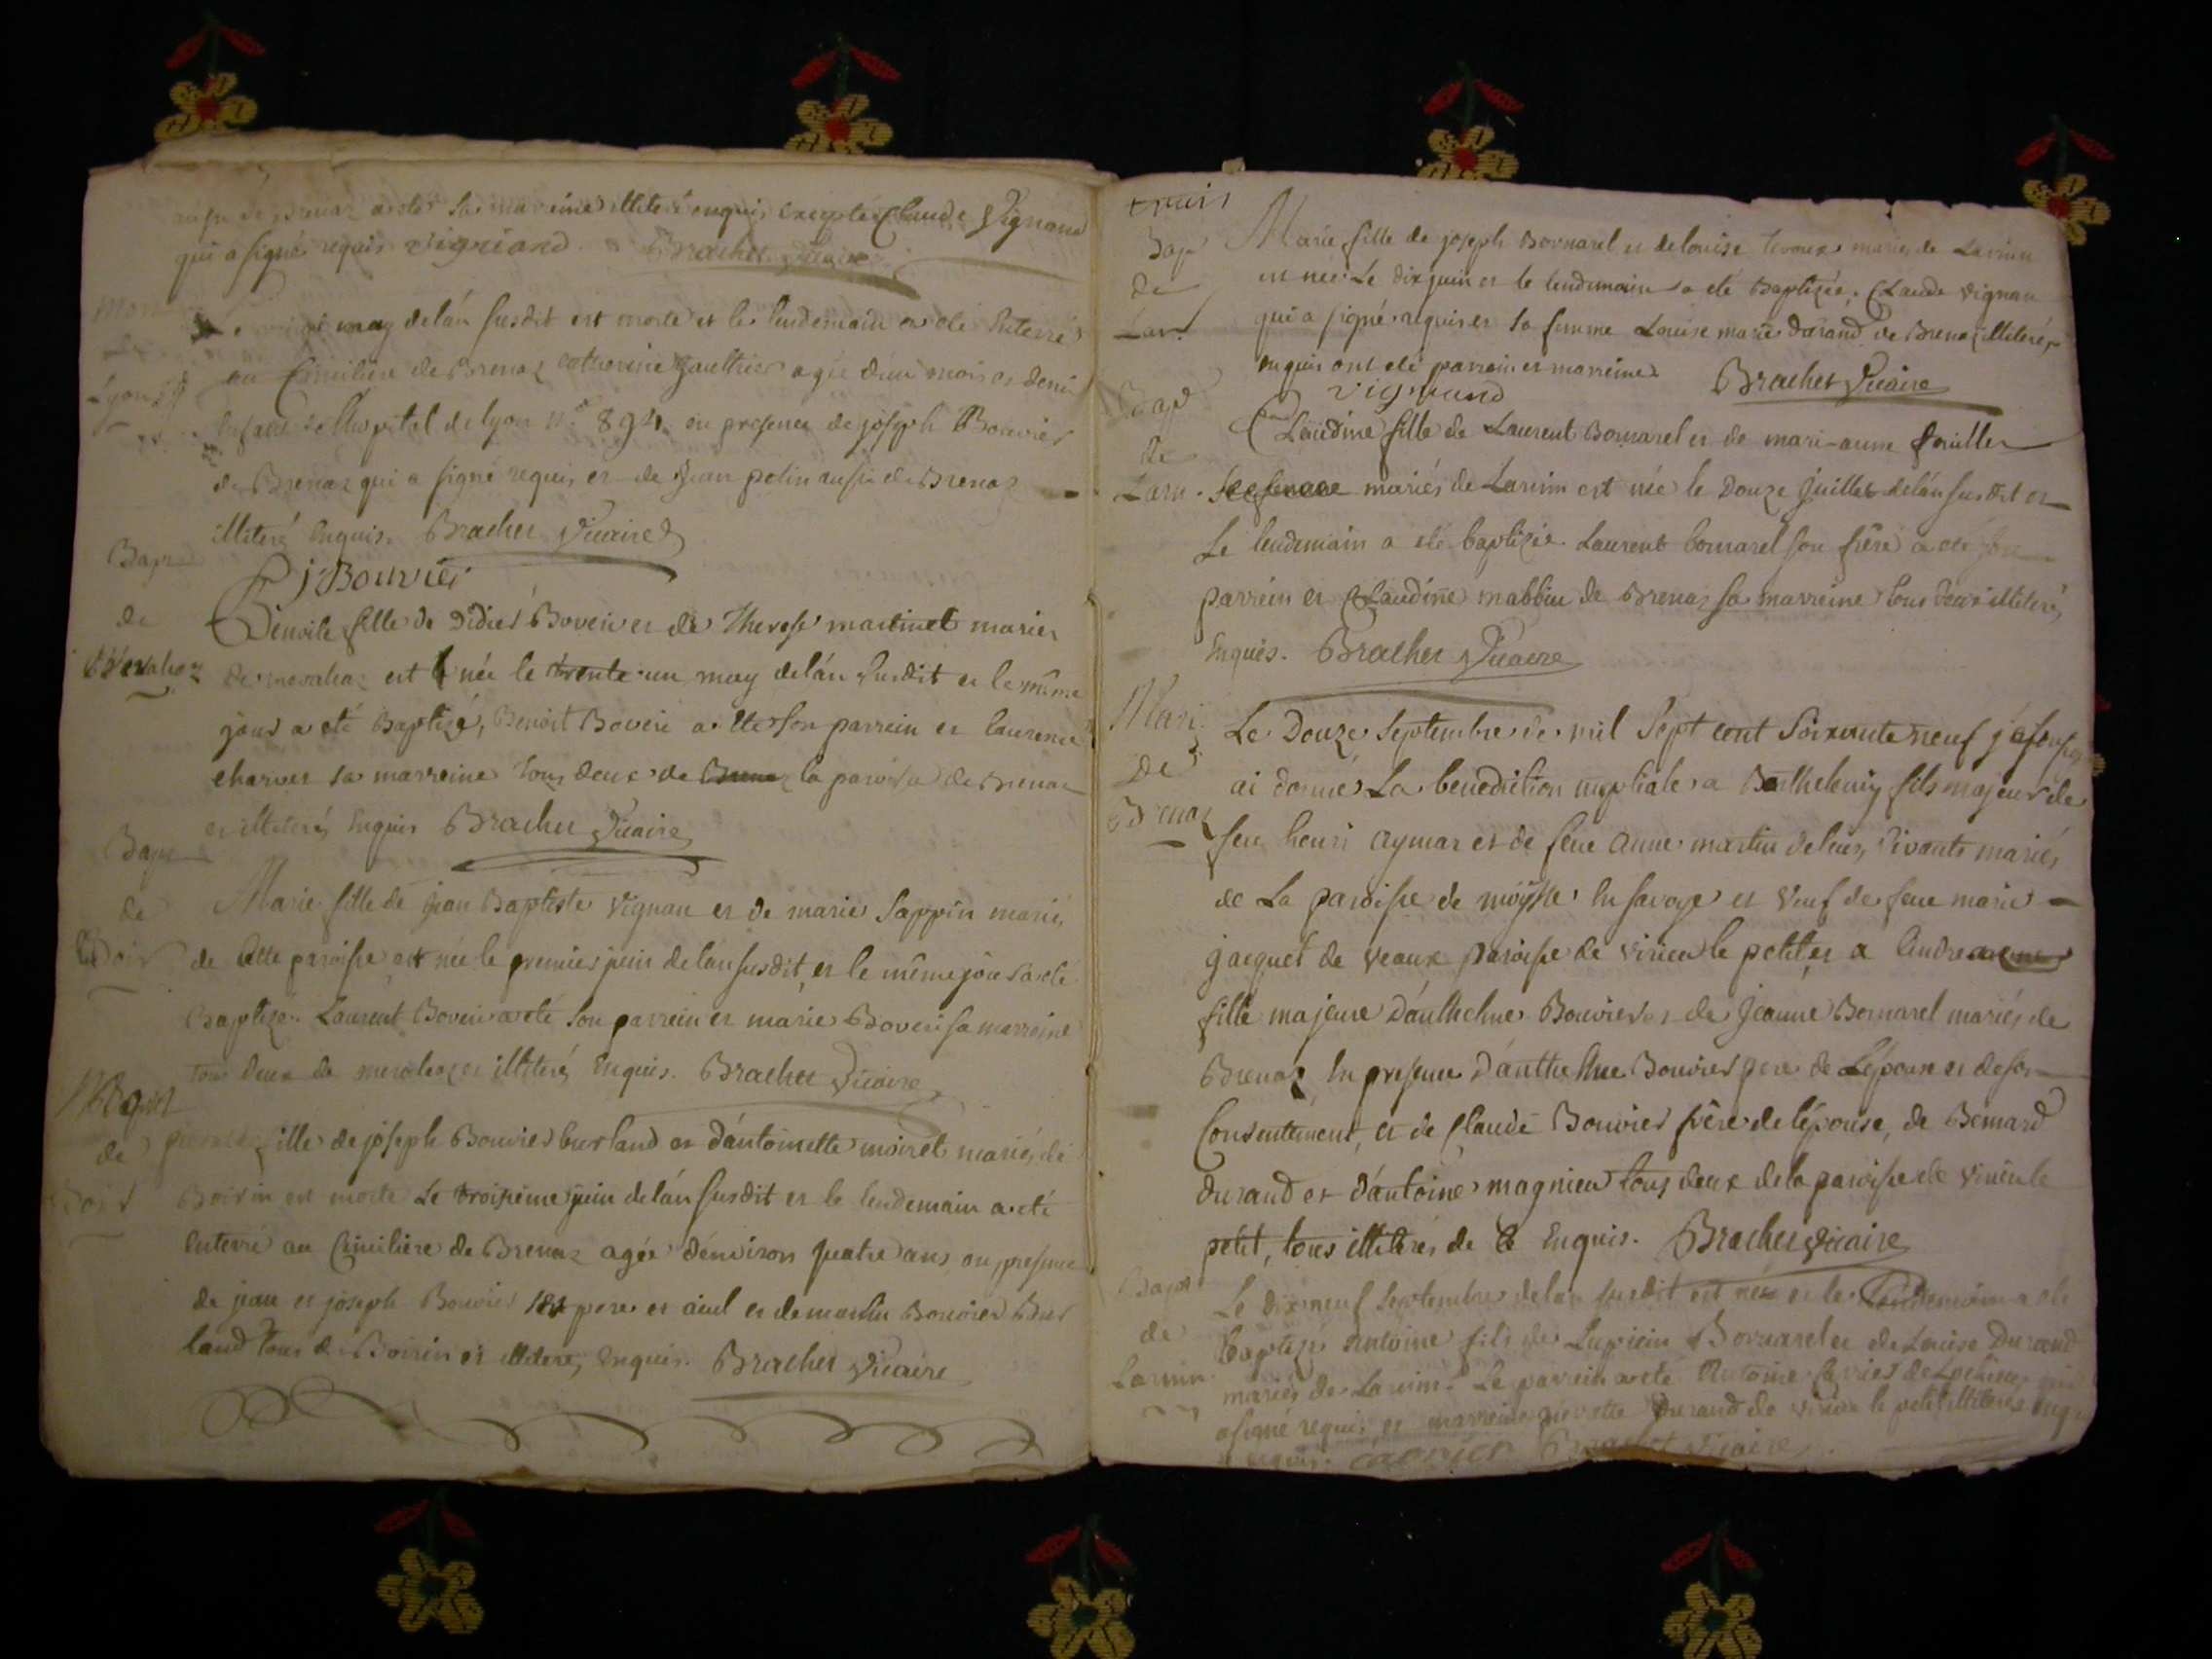 aussi de Brenaz a été sa marreine illiteré enquis excepté Claude Vignand
qui a signé requis vigniand Bracher Vicaire
Mort
Le may delán susdit est morte et le lendemain a été Enterré
au Cimitiere de Brenaz Catherine Gauthier agée d'un mois et demi
Lyon
Enfant de l'hopital de lyon n.° 894 en presence de joseph Bouvier
de Brenaz qui a signé requis et de Jean petin aussi de Brenaz
illiteré Enquis. Bracher Vicaire
J Bouvier
Bapt
de
Benoite fille de Didier Boveri et de Therese martinet mariés
Mevaleaz
de mevaleaz est née le trente un may delán susdit et le même
jour a eté Baptizé, Benoit Boveri a eté son parrein et laurence
charver sa marreine tous deux de Brenaz la paroisse de Brenaz
et illiterés Enquis Bracher Vicaire
Bapt
de
Marie fille de Jean Baptiste Vignan et de marie Sappin mariés
de cette paroisse est née le premier juin delán susdit, et le même jour a eté
Baptizé. Laurent Boveri a eté son parrein et marie Boveri sa marreine
tous deux de mevaleaz et illiterés Enquis. Bracher Vicaire
de
fille de joseph Bouvier burland et d'antoinette moiret mariés de
Boirin est morte Le troisieme juin delán susdit et le lendemain a eté
Enterré au Cimitiere de Brenaz agée d'environ quatre ans en presence
de jean et joseph Bouvier pere et aieul et de martin Bouvier Bur
land tous de Boirin et illiterés Enquis. Bracher Vicaire
Bap
de
Lar
Marie fille de joseph Bornarel et de louise levoux mariés de Larrin
est née Le dix juin et le lendemain a eté Baptizée. Claude Vignan
qui a signé requis et sa femme Louise marie durand de Brenaz illiterés
enquis ont eté parrein et marreine Bracher Vicaire
vigniand
Bapt
de
Larr.
Claudine fille de Laurent Bornarel et de mari-anne
mariés de Larrin est née le Douze juillet delán susdit et
Le lendemain a eté baptizée Laurent bornarel son frére a eté son
parrein et Claudine mabbin de Brenaz sa marreine tous deux illiterés
Enquis. Bracher Vicaire
Mari.
de
Brenaz
Le Douze Septembre de mil Sept cent Soixante neuf
ai donné La benediction nuptiale a Barthelemy fils majeur de
feu henri aymar et de feue anne martin deleur vivants mariés
de La paroisse de en savoye et Veuf de feue marie
jacquet de veaux paroisse de virieu le petit, et a Andrea
fille majeure D'anthelme Bouvier et de Jeanne Bornarel mariés de
Brenaz En presence D'anthelme Bouvier pere de L'épouse et de son
Consentement, et de Claude Bouvier frére de l'épouse, de Bernard
Durand et d'antoine magnieu tous deux dela paroisse de virieu le
petit, tous illiterés de Ce Enquis. Bracher Vicaire
Bapt
de
Larrin
Le dix neuf Septembre delan susdit est née et le lendemain a eté
baptizé Antoine fils de Bornarel et de Louise Durand
mariés de Larrin. Le parrein a eté Antoine
a signé requis et marreine pierrette Durand de virieu le petit illiterée
enquis. Bracher Vicaire